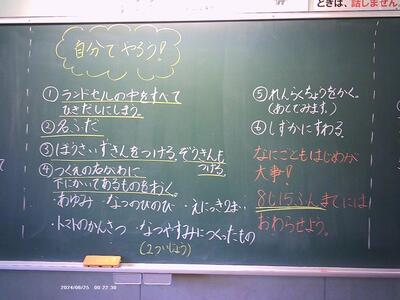 ときは、話しません。
自分でやろう!
① ランドセルの中をすべて
ひきだしにしまう。
② 名ふだ
③ ぼうさいずきんをつける。ぞうきんも
つける。
④ つくえの右がわに
下にかいてあるものをおく。
・あゆみ ・なつのひのび ・えにっき2まい
・トマトのかんさつ ・なつやすみにつくったもの
(2ついじょう)
⑤ れんらくちょうをかく。
(あとでみます。)
⑥ しずかにすわる。
なにごともはじめが
大事!
8じ15ふんまでには
おわらせよう。
2024/08/25 00:22:30